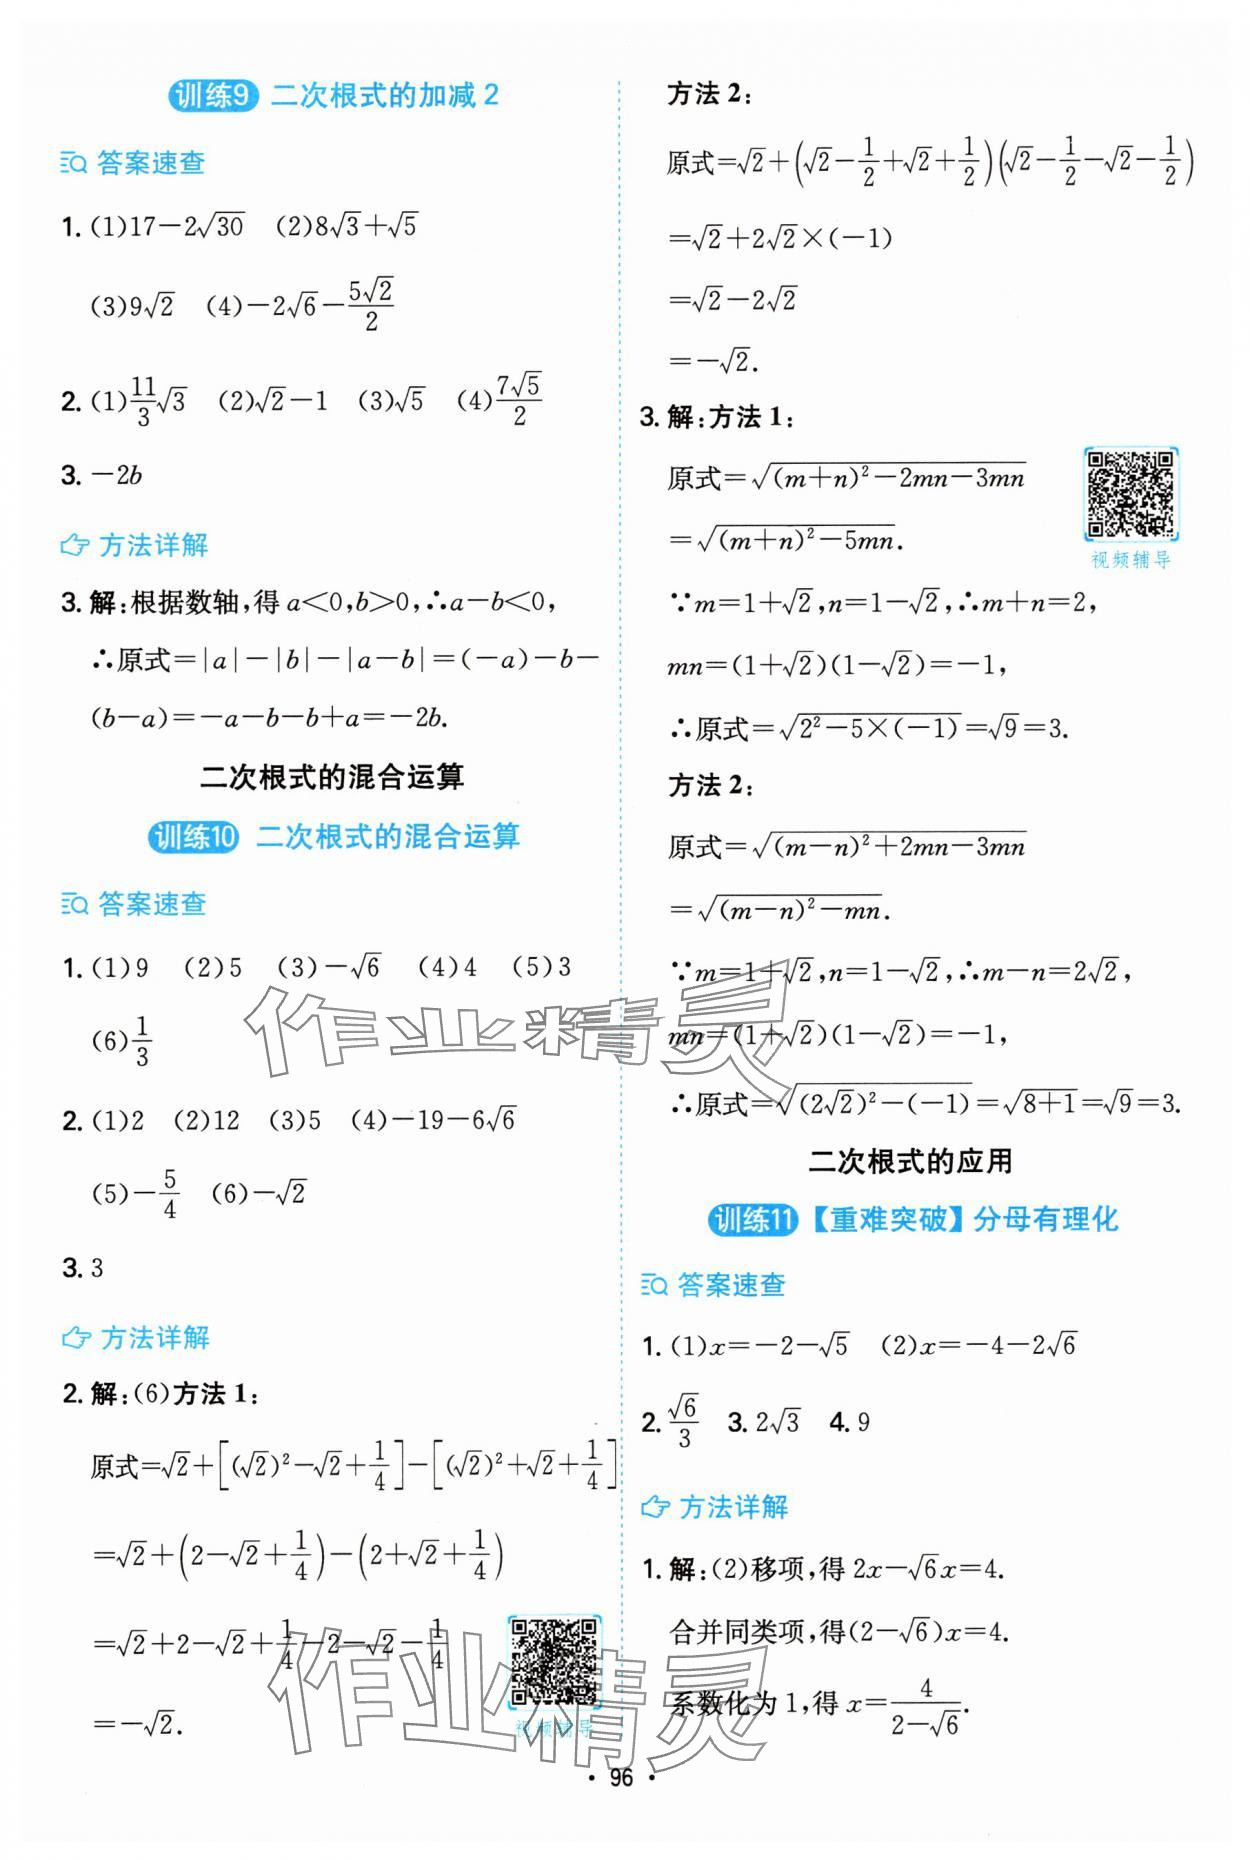 训练9 二次根式的加减 2
答案速查
1. (1)17－2√30 (2)8√3＋√5
(3)9√2 (4)－2√6－5√2/2
2. (1)11/3√3 (2)√2－1 (3)√5 (4)7√5/2
3. －2b
方法详解
3. 解:根据数轴,得 a＜0,b＞0,∴a－b＜0,
∴原式＝|a|－|b|－|a－b|＝(－a)－b－
(b－a)＝－a－b－b＋a＝－2b.
二次根式的混合运算
训练10 二次根式的混合运算
答案速查
1. (1)9 (2)5 (3)－√6 (4)4 (5)3
(6)1/3
2. (1)2 (2)12 (3)5 (4)－19－6√6
(5)－5/4 (6)－√2
3. 3
方法详解
2. 解:(6)方法 1:
原式＝√2＋[(√2)²－√2＋1/4]－[(√2)²＋√2＋1/4]
＝√2＋(2－√2＋1/4)－(2＋√2＋1/4)
＝√2＋2－√2＋1/4－2－√2－1/4
＝－√2.
视频辅导
方法 2:
原式＝√2＋(√2－1/2＋√2＋1/2)(√2－1/2－√2－1/2)
＝√2＋2√2×(－1)
＝√2－2√2
＝－√2.
3. 解:方法 1:
原式＝√((m＋n)²－2mn－3mn)
＝√((m＋n)²－5mn).
视频辅导
∵m＝1＋√2,n＝1－√2,∴m＋n＝2,
mn＝(1＋√2)(1－√2)＝－1,
∴原式＝√(2²－5×(－1))＝√9＝3.
方法 2:
原式＝√((m－n)²＋2mn－3mn)
＝√((m－n)²－mn).
∵m＝1＋√2,n＝1－√2,∴m－n＝2√2,
mn＝(1＋√2)(1－√2)＝－1,
∴原式＝√((2√2)²－(－1))＝√(8＋1)＝√9＝3.
二次根式的应用
训练11 【重难突破】分母有理化
答案速查
1. (1)x＝－2－√5 (2)x＝－4－2√6
2. √6/3 3. 2√3 4. 9
方法详解
1. 解:(2)移项,得 2x－√6x＝4.
合并同类项,得(2－√6)x＝4.
系数化为 1,得 x＝4/(2－√6).
· 96 ·
作业精灵
作业精灵